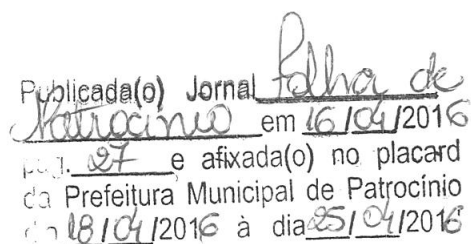 Publicada(o) Jornal Folha de
Patrocínio em 16/04/2016
pág. 27 e afixada(o) no placard
da Prefeitura Municipal de Patrocínio
do 18/04/2016 à dia 25/04/2016